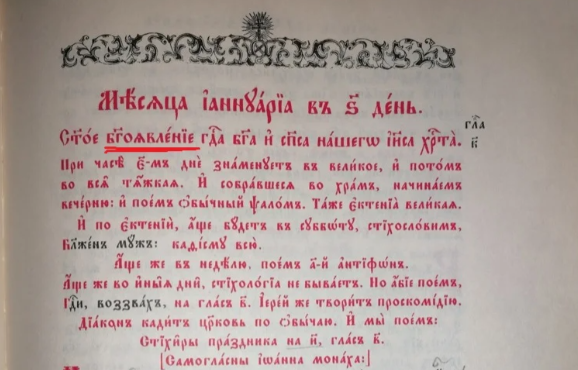 Мѣ́сѧца і҆аннꙋа́рїа въ ѕ҃ де́нь.
Ст҃о́е бг҃оѧвле́нїе гдⷭ҇а бг҃а и҆ сп҃са на́шегѡ і҆и҃са хрⷭ҇та̀.
гла
в҃
При часѣ̀ є҃-мъ днѐ зна́менꙋетъ въ вели́кое, и҆ пото́мъ
во всѧ̑ тѧ̑жкаѧ. И҆ собра́вшесѧ во хра́мъ, начина́емъ
вече́рню: и҆ пое́мъ ѻ҆бы́чный ѱало́мъ. Та́же є҆ктенїа̀ вели́каѧ.
И҆ по є҆ктенїѝ, а҆́ще бꙋ́детъ въ сꙋббѡ́тꙋ, стїхосло́вимъ,
Бл҃же́нъ мꙋ́жъ: каѳі́смꙋ всю̀.
А҆́ще же въ недѣ́лю, пое́мъ а҃-й а҆нтїфѡ́нъ.
А҆́ще же во и҆́ны̑ѧ днѝ, стїхоло́гїа не быва́етъ. Но а҆́бїе пое́мъ,
Гдⷭ҇и, воззва́хъ, на гла́съ в҃. І҆ере́й же твори́тъ проскомі́дїю.
Дїа́кѡнъ кади́тъ цр҃ковь по ѻ҆бы́чаю. И҆ мы̀ пое́мъ:
Стїхи̑ры пра́здника на и҃, гла́съ в҃.
[Самогла̑сны і҆ѡа́нна мона́ха:]